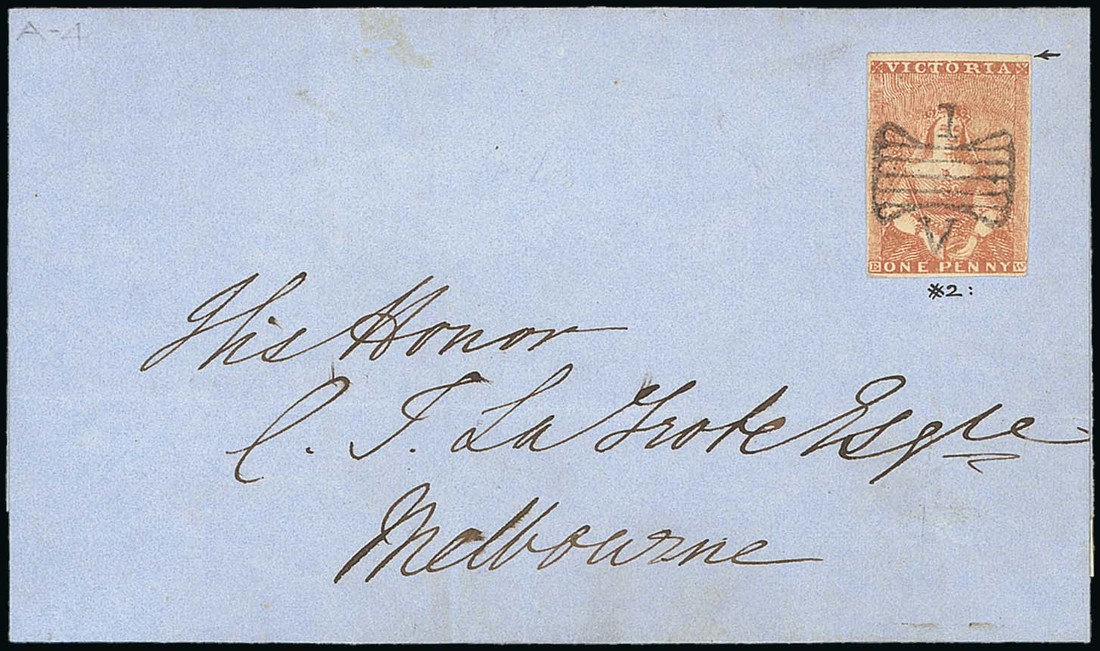 A-4
VICTORIA
1
V
E ONE PENNY W
*2:
His Honor
C. J. La Trobe Esqre
Melbourne